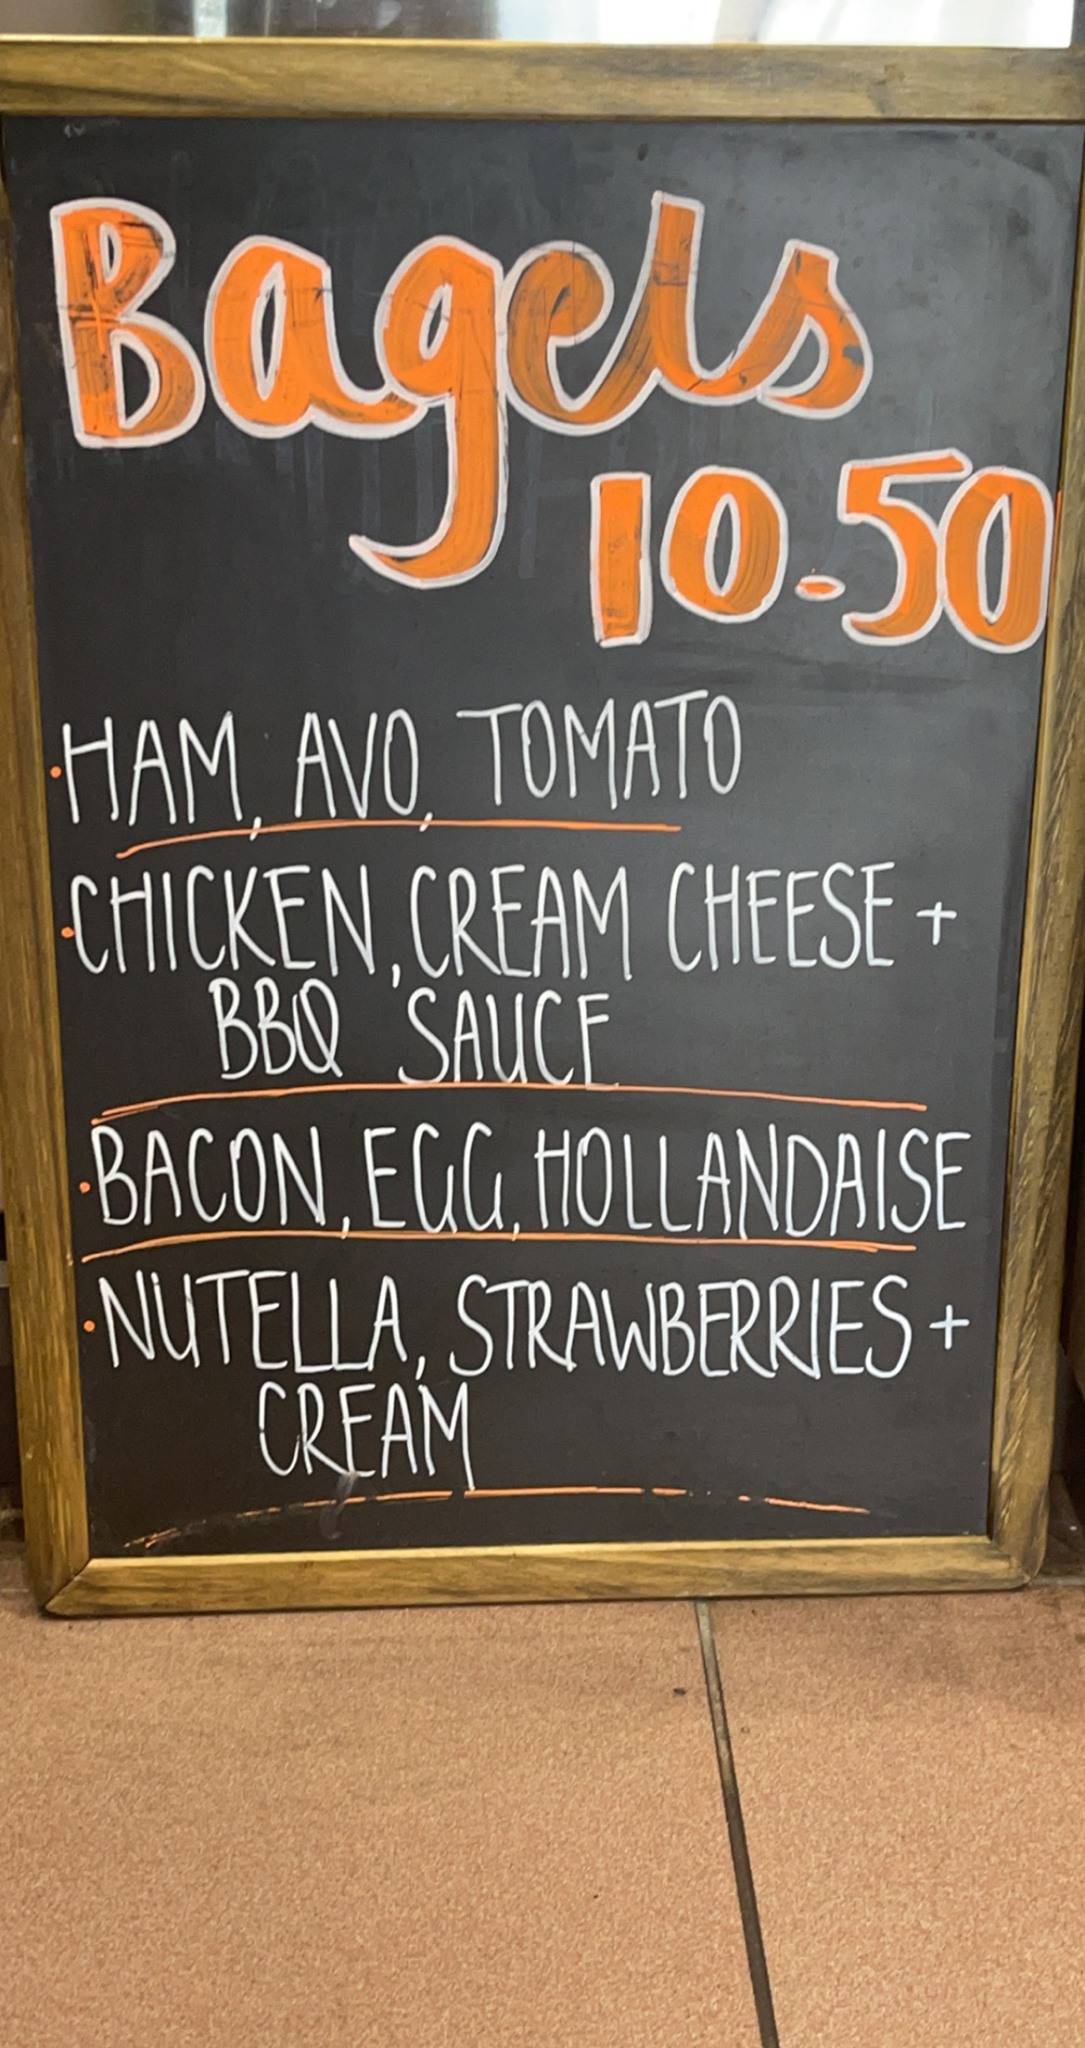 Bagels
10.50
• HAM, AVO, TOMATO
• CHICKEN, CREAM CHEESE +
BBQ SAUCE
• BACON, EGG, HOLLANDAISE
• NUTELLA, STRAWBERRIES +
CREAM